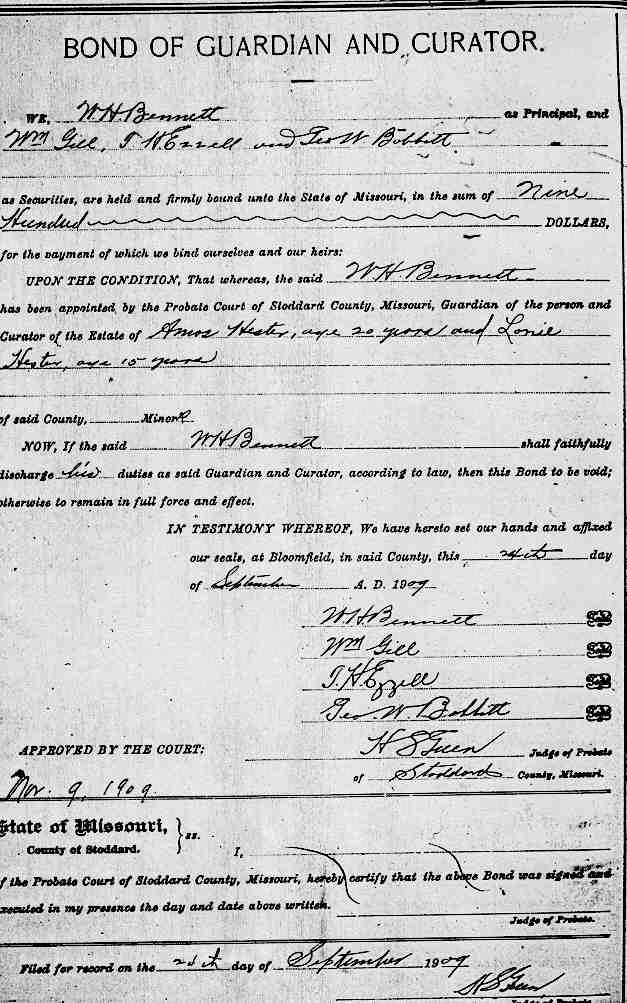 BOND OF GUARDIAN AND CURATOR.
WE, W H Bennett as Principal, and
Wm Gill, T H Ezzell and Geo W Bobbitt
as Securities, are held and firmly bound unto the State of Missouri, in the sum of Nine
Hundred DOLLARS,
for the payment of which we bind ourselves and our heirs:
UPON THE CONDITION, That whereas, the said W. H. Bennett
has been appointed, by the Probate Court of Stoddard County, Missouri, Guardian of the person and
Curator of the Estate of Amos Hester, age 20 years and Lonie
Hester, age 15 years
of said County, Minors
NOW, If the said W H Bennett shall faithfully
discharge his duties as said Guardian and Curator, according to law, then this Bond to be void;
otherwise to remain in full force and effect.
IN TESTIMONY WHEREOF, We have hereto set our hands and affixed
our seals, at Bloomfield, in said County, this 24th day
of September A. D. 1909
W H Bennett
Wm Gill
T. H Ezzell
Geo. W. Bobbitt
APPROVED BY THE COURT: H S Judge of Probate
of Stoddard County, Missouri.
Nov. 9, 1909.
State of Missouri, } ss.
County of Stoddard. I,
f the Probate Court of Stoddard County, Missouri, hereby certify that the above Bond was signed and
executed in my presence the day and date above written.
Judge of Probate.
Filed for record on the 24th day of September 1909
H S
Judge of Probate